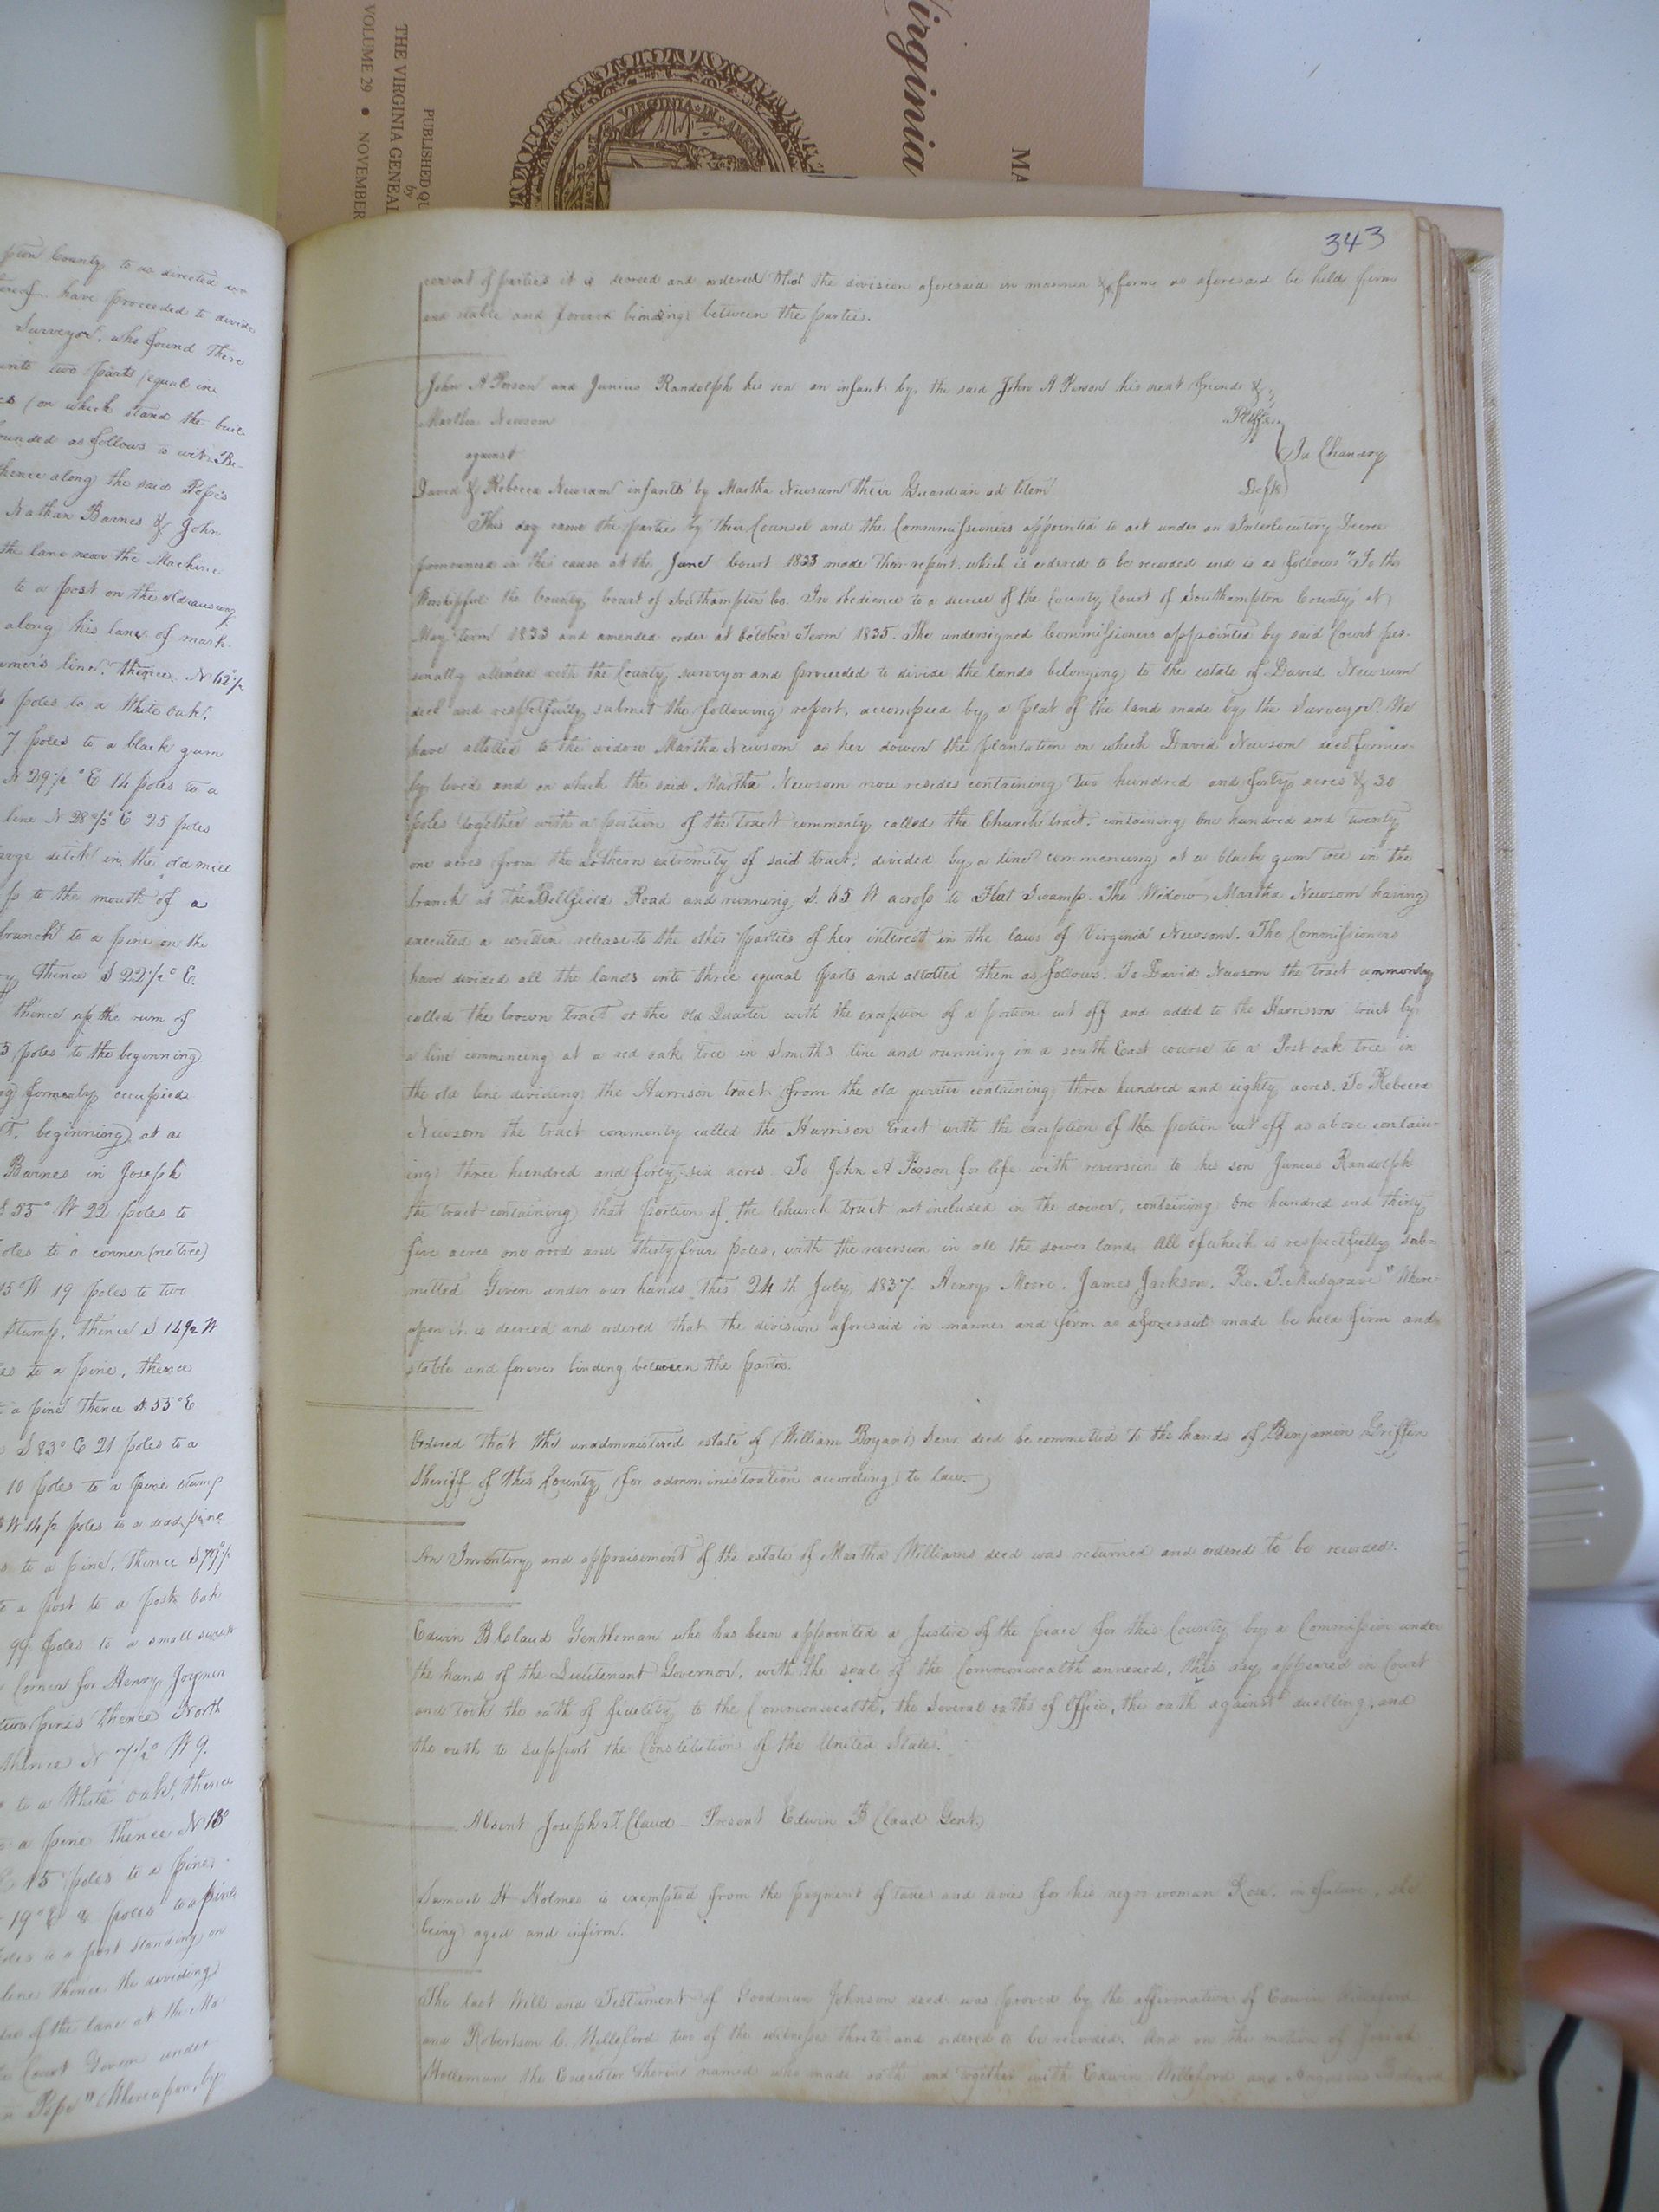 Virginia
MA
PUBLISHED QU
by
THE VIRGINIA GENEAL
VOLUME 29 • NOVEMBER
VIRGINIA
pton County to us directed
have proceeded to divide
Surveyor, who found there
unto two parts equal in
(on which stand the buil-
bounded as follows to wit: Be-
thence along the said Pope's
Nathan Barnes & John
the lane near the Machine
to a post on the old causeway
along his line of mark-
thence N 62½
poles to a White Oak,
7 poles to a black gum
N 29½° E 14 poles to a
line N 28½° E 25 poles
ditch in the old mill
to the mouth of a
branch to a pine on the
thence S 22½° E.
thence up the run of
5 poles to the beginning.
formerly occupied
beginning at a
Barnes in Joseph
S 55° W 22 poles to
poles to a corner (no tree)
15° W 19 poles to two
stump, thence S 14½ W
to a pine, thence
to a pine thence S 53° E
S 83° E 21 poles to a
10 poles to a pine stump
W 14½ poles to a dead pine
to a pine, thence S 79½
to a post to a post Oak
99 poles to a small
Corner for Henry Joyner
two pines thence North
thence N 7½° W 9.
to a White Oak, thence
to a pine thence N 18°
15 poles to a pine,
19° E 8 poles to a pine
poles to a post standing on
line thence the dividing
of the lane at the Ma-
Court Given under
Pope" Whereupon, by
343
consent of parties it is decreed and ordered that the division aforesaid in manner & form as aforesaid be held firm
and stable and forever binding between the parties.
John A Person and Junius Randolph his son an infant by the said John A Person his next friend &
Martha Newsom Pltffs
against In Chancery
David & Rebecca Newsum infants by Martha Newsum their Guardian ad litem Defts
This day came the parties by their Counsel and the Commissioners appointed to act under an Interlocutory Decree
pronounced in this cause at the June Court 1833 made their report, which is ordered to be recorded and is as follows "To the
Worshipful the County Court of Southampton Co. In obedience to a decree of the County Court of Southampton County at
May term 1833 and amended order at October Term 1835. The undersigned Commissioners appointed by said Court per-
sonally attended with the County surveyor and proceeded to divide the lands belonging to the estate of David Newsum
decd and respectfully submit the following report, accompied by a plat of the land made by the Surveyor. We
have allotted to the widow Martha Newsom as her dower the plantation on which David Newsom decd former-
ly lived and on which the said Martha Newsom now resides containing two hundred and forty acres & 30
poles together with a portion of the tract commonly called the Church tract, containing One hundred and twenty
one acres from the Nothern extremity of said tract, divided by a line commencing at a black gum tree in the
branch at the Bellfield Road and running S. 65 W across to Flat Swamp. The Widow Martha Newsom having
executed a written release to the other parties of her interest in the laws of Virginia Newsom. The Commissioners
have divided all the lands into three equal parts and allotted them as follows. To David Newsom the tract commonly
called the brown tract or the Old Quarter with the exception of a portion cut off and added to the Harrison tract by
a line commencing at a red oak tree in Smith's line and running in a south East course to a Post oak tree in
the old line dividing the Harrison tract from the old quarter containing three hundred and eighty acres. To Rebecca
Newsom the tract commonly called the Harrison tract with the exception of the portion cut off as above contain-
ing three hundred and forty six acres To John A Person for life with reversion to his son Junius Randolph
the tract containing that portion of the Church tract not included in the dower, containing One hundred and thirty
five acres one rood and thirty four poles, with the reversion in all the dower land. All of which is respectfully sub-
mitted Given under our hands this 24th July 1837. Henry Moore. James Jackson. Ro. T. Musgrave" Where-
upon it is decreed and ordered that the division aforesaid in manner and form as aforesaid made be held firm and
stable and forever binding between the parties.
Ordered that the unadministered estate of William Bryant Senr. decd be committed to the hands of Benjamin Griffin
Sheriff of this County for administration according to law.
An Inventory and appraisement of the estate of Martha Williams decd was returned and ordered to be recorded.
Edwin B Claud Gentleman who has been appointed a Justice of the peace for this County by a Commission under
the hand of the Lieutenant Governor, with the seal of the Commonwealth annexed, this day appeared in Court
and took the oath of fidelity to the Commonwealth, the Several oaths of Office, the oath against duelling, and
the oath to support the Constitution of the United States.
Absent Joseph T. Claud — Present Edwin B Claud Gent.
Samuel H Holmes is exempted from the payment of taxes and levies for his negro woman Rose in future, she
being aged and infirm.
The last Will and Testament of Goodman Johnson decd was proved by the affirmation of Edwin Williford
and Robertson C. Williford two of the witnesses thereto and ordered to be recorded. And on the motion of Josiah
Holleman the Executor therein named who made oath and together with Edwin Williford and